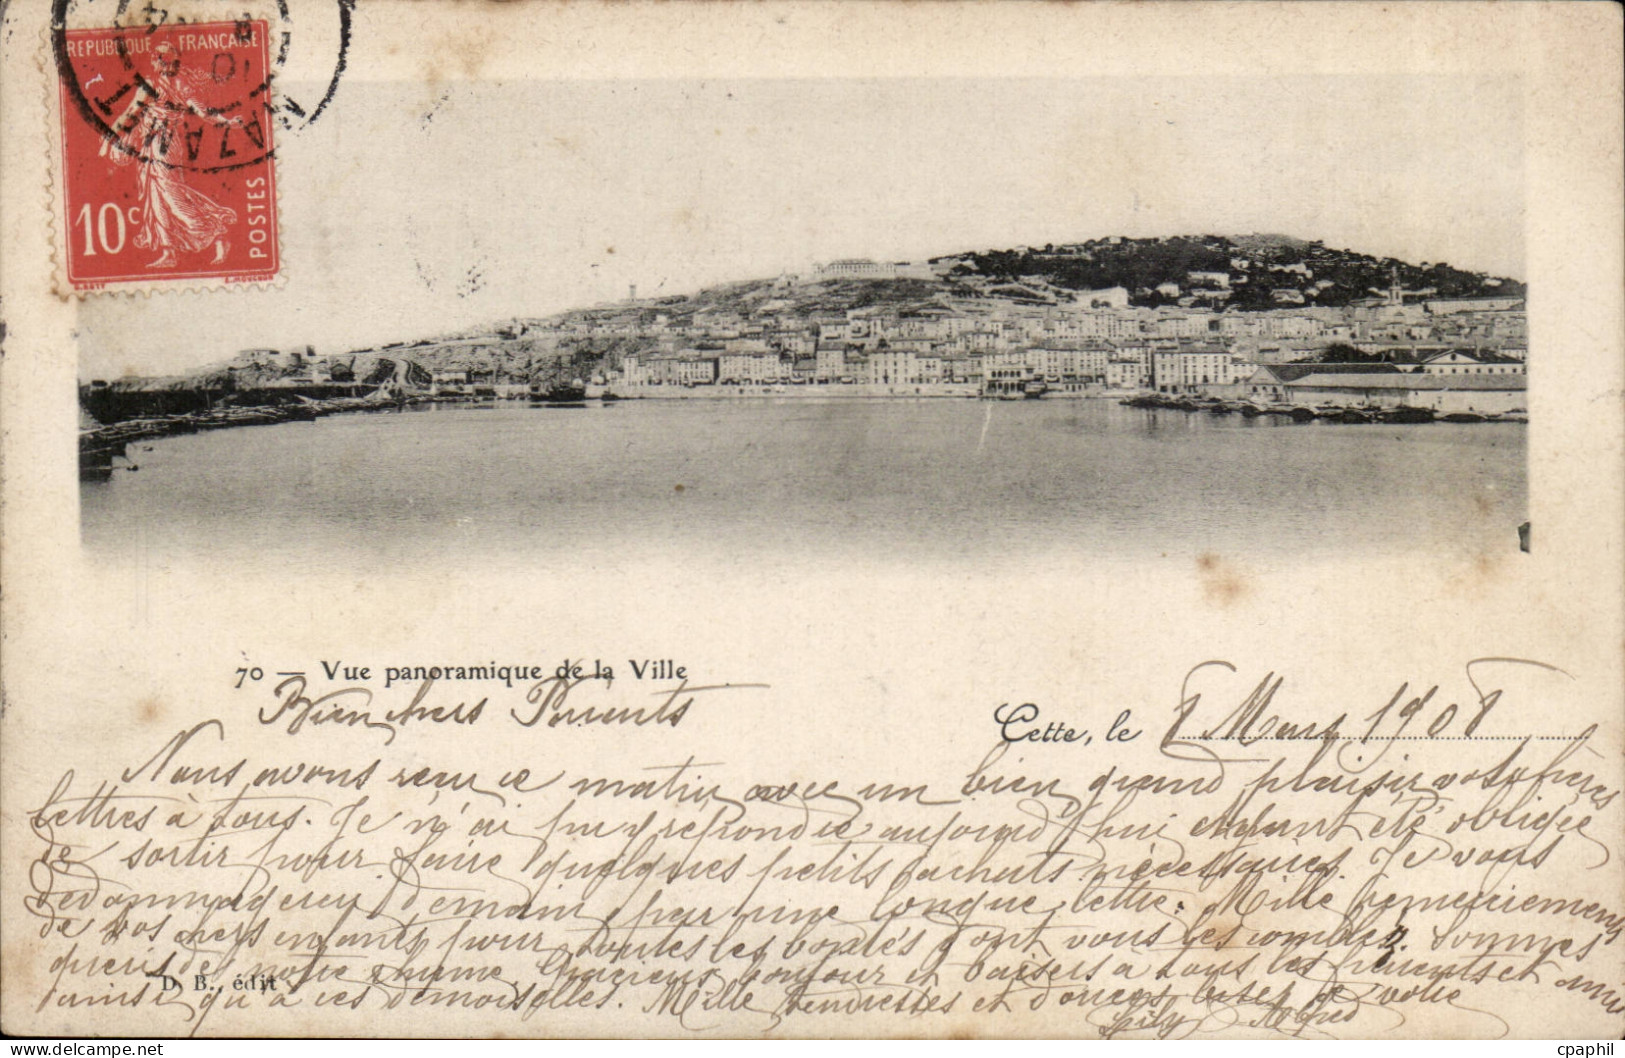 REPUBLIQUE FRANÇAISE
10c
POSTES
MAZAMET
70 — Vue panoramique de la Ville
Bien chers Parents
Cette, le 8 Mars 1908
Nous avons reçu ce matin avec un bien grand plaisir vos chères
lettres à tous. Je n'ai pu y répondre aujourd'hui ayant été obligée
de sortir pour faire quelques petits achats nécessaires. Je vous
dedommagerai demain par une longue lettre. Mille remerciements
de vos chers enfants pour toutes les bontés dont vous les comblez. Sommes
guéris de notre rhume. Gracieux bonjour et baisers à tous les parents et amis
ainsi qu'à ces demoiselles. Mille tendresses et doux baisers de votre
Lily Alfred
D. B., édit
cpaphil © www.delcampe.net